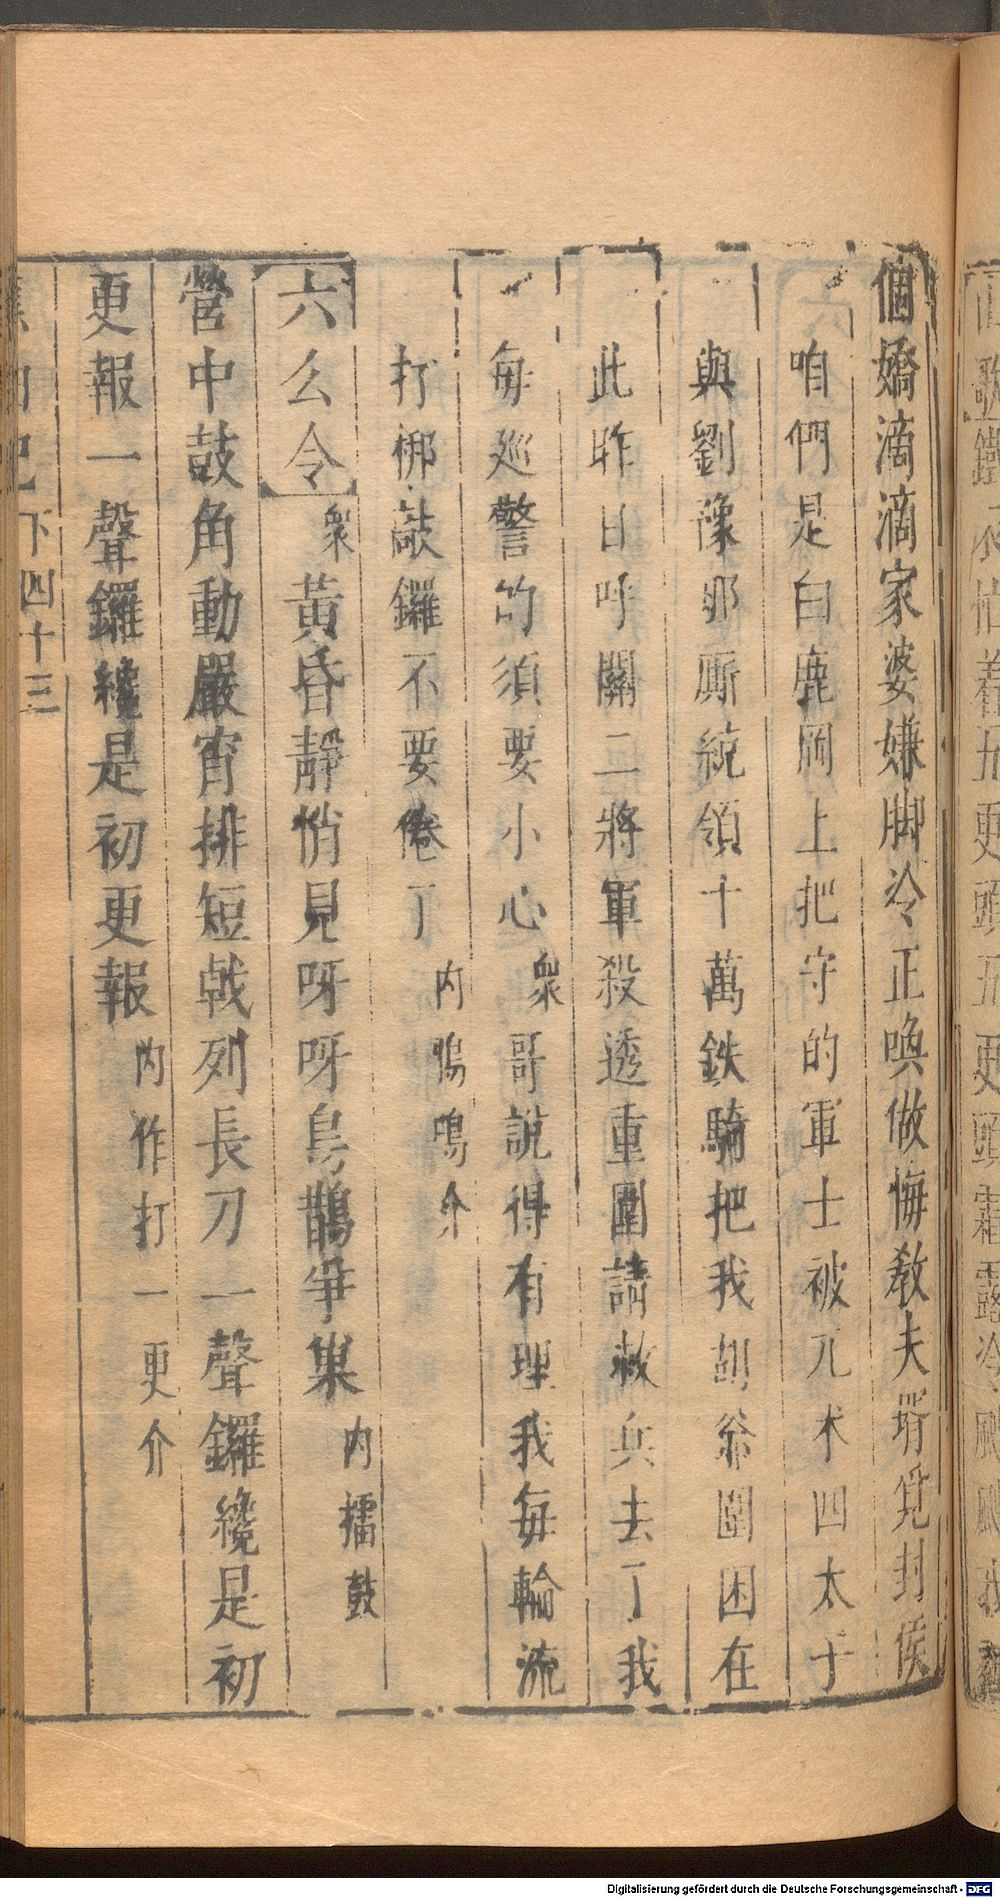 個嬌滴滴家婆嫌脚冷正喚做悔教夫壻覓封侯
咱們是白鹿岡上把守的軍士被兀朮四太子
與劉豫那厮統領十萬鉄騎把我胡爺圍困在
此昨日呼關二將軍殺透重圍請救兵去了我
每廵警的須要小心衆哥說得有理我每輪流
打梆敲鑼不要倦了内鳴鳴介
六么令衆黃昏靜悄見呀呀鳥鵲爭巢内擂鼓
營中鼓角動嚴宵排短戟列長刀一聲鑼纔是初
更報一聲鑼纔是初更報内作打一更介
下四十三
Digitalisierung gefördert durch die Deutsche Forschungsgemeinschaft - DFG